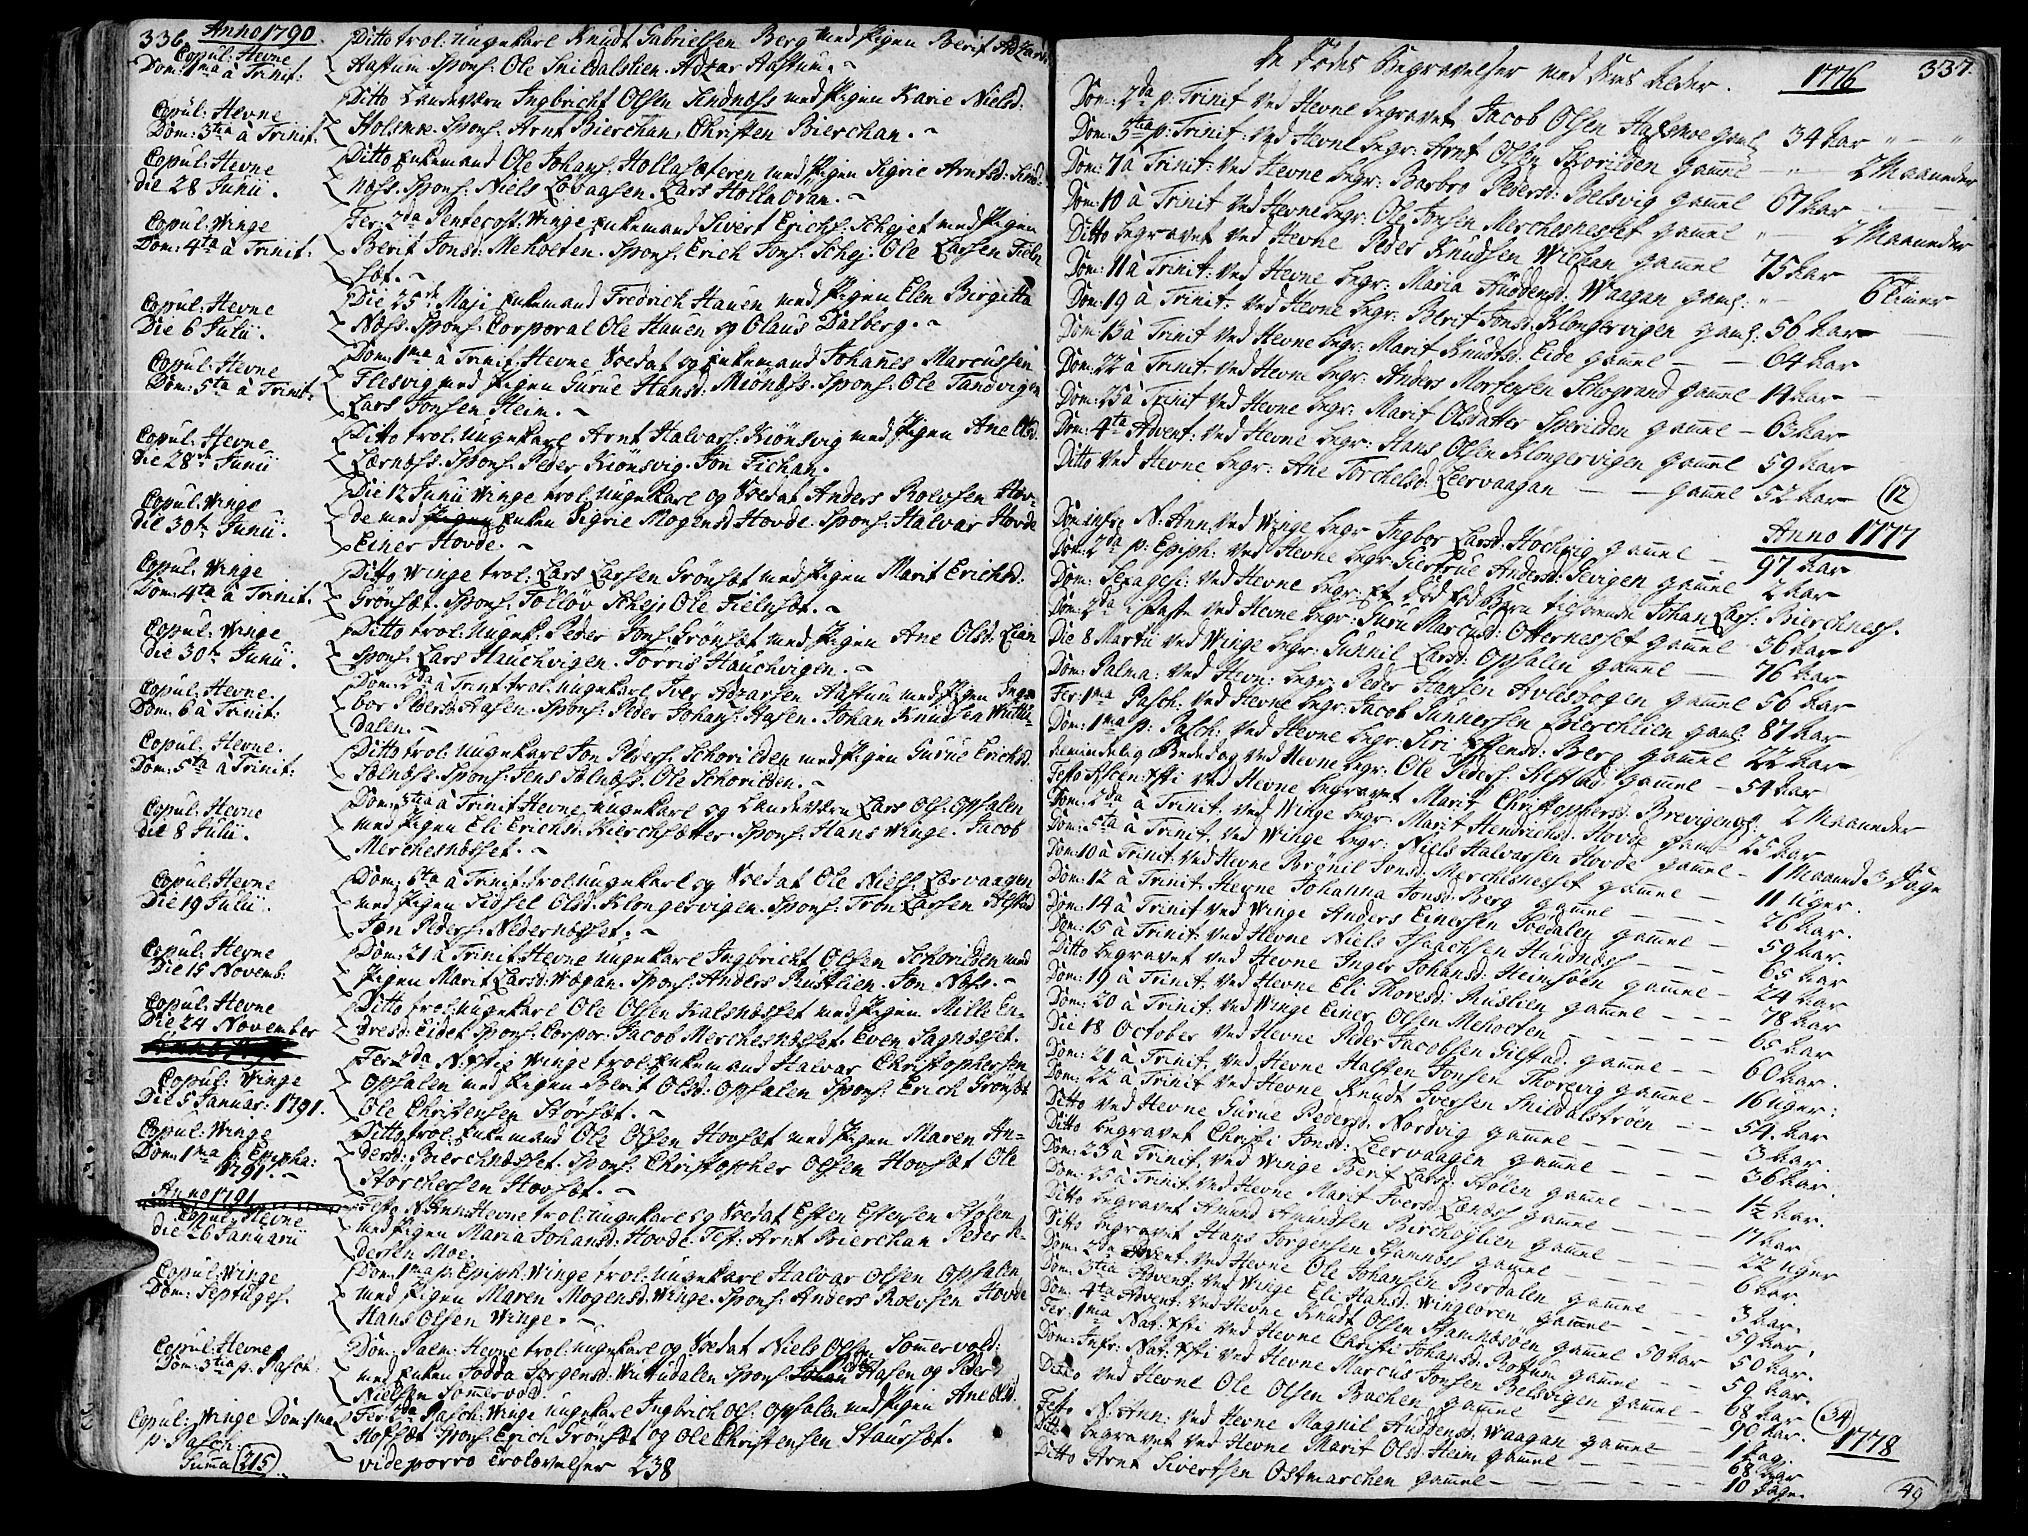 336. Anno 1790
Copul: Hevne
Dom: 1ma à Trinit:
Ditto trol: ungekarl Knudt Gabrielsen Berg med Pigen Berit Adzars
Aastum. Spons: Ole Snildalslien. Adzar Aastum.
Copul: Hevne
Dom: 3tia à Trinit:
Ditto Landeværn Ingbricht Olsen Sindnæss med Pigen Karie Nielsd:
Holsmoe. Spons: Arnt Bierchan, Christen Bierchan.
Copul: Hevne
die 28 Junii.
Ditto Enkemand Ole Johans: Hollasæteren med Pigen Sigrie Arntsd: Sind-
næss. Spons: Niels Lovaasen. Lars Hollaøran.
Copul: Winge
Dom: 4ta à Trinit:
Fer: 2da Pentecost: Winge Enkemand Sivert Erichs: Schejet med Pigen
Berit Jonsd: Mehoeten. Spons: Erich Jons: Schej. Ole Larsen Fieln
sæt.
Copul: Hevne
Die 6 Julii.
Die 25de Maji Enkemand Fredrich Hauen med Pigen Elen Birgitta
Næss. Spons: Corporal Ole Hauen og Olaus Dalberg.
Copul: Hevne
Dom: 5ta à Trinit:
Dom: 1ma à Trinit: Hevne Soldat og Enkemand Johannes Marcussen
Flesvig med Pigen Gurue Hansd: Miønæss. Spons: Ole Tandvigen
Lars Jonsen Heim.
Copul: Hevne
die 28de Junii
Ditto trol: ungekarl Arnt Halvars: Kiønsvig med Pigen Ane Olsd
Lærnæss. Spons: Peder Kiønsvig. Jon Fichan.
Copul: Winge
die 30te Junii.
Die 12 Junii Winge trol: ungekarl og Soldat Anders Roevsen Hov-
de med Enken Sigrie Mogensd: Hovde. Spons: Halvar Hovde
Einer Hovde.
Copul: Winge
Dom: 4ta à Trinit.
Ditto Winge trol: Lars Larsen Grønsæt med Pigen Marit Erichsd:
Grønsæt. Spons: Tølløv Schej, Ole Fielnsæt.
Copul: Winge
die 30te Junii.
Ditto trol: ungek: Peder Jons: Grønsæt med Pigen Ane Olsd: Lian
Spons: Lars Hauchvigen. Tørris Hauchvigen.
Copul: Hevne.
Dom: 6 à Trinit:
Dom: 2da à Trinit: trol: ungekarl Iver Adzarsen Aastum med Pigen Inge-
bor Pedersd: Hasen. Spons: Peder Johans: Hasen. Johan Knudsen Wutdu-
dalen.
Copul: Hevne.
Dom: 5ta à Trinit:
Ditto trol: ungekarl Jon Peders: Schorilden med Pigen Gurue Erichsd:
Solnæss. Spons: Jens Solnæss. Ole Schorilden.
Copul: Hevne
die 8 Julii.
Dom: 3tia à Trinit: Hevne ungekarl og Landeværn Lars Ols: Opsalen
med Pigen Eli Erichsd: Kierchsætter. Spons: Hans Winge. Jacob
Merchesnæsset.
Copul: Hevne
Die 19 Julii.
Dom: 5ta à Trinit: trol: ungekarl og Soldat Ole Niels: Leervaagen
med Pigen Sidsel Olsd: Klongervigen. Spons: Tron Larsen Alstad
Jon Peders: Nedernæsset.
Copul: Hevne
Die 15 Novemb:
Dom: 21 à Trinit: Hevne ungekarl Ingbricht Olsen Schorilden med
Pigen Marit Larsd: Wogan. Spons: Anders Rustlien. Jon Næss.
Copul: Hevne
Die 24 November
Ditto trol: ungekarl Ole Olsen Kalsnæsset med Pigen Mille En-
dresd: Eidet. Spons: Corpor: Jacob Merchesnæsset. Even Sagnæsset.
Copul: Winge
Die 5 Januar: 1791.
Fer: 2da N: Xsti Winge trol: Enkemand Halvar Christophersen
Opsalen med Pigen Berit Olsd: Opsalen Spons: Erich Grønsæt
Ole Christensen Storsæt.
Copul: Winge
Dom: 1ma p: Epipha:
1791.
Ditto trol: Enkemand Ole Olsen Hovsæt med Pigen Maren An-
dersd: Bierchnæsset. Spons: Christopher Olsen Hovsæt Ole
Storchersen Hovsæt.
Anno 1791
Copul: Hevne
die 26 Januarii
Festo N: Ann: Hevne trol: ungekarl og Soldat Esten Estensen Siøsen
med Pigen Maria Johansd: Hovde. Test: Arnt Bierchan Peder Pe-
dersen Moe.
Copul: Winge
Dom: Septuges.
Dom: 1ma p: Epiph: Winge trol: ungekarl Halvar Olsen Opsalen
med Pigen Maren Mogensd: Winge. Spons: Anders Roevsen Hovde
Hans Olsen Winge.
Copul: Hevne
Dom: 3tia p: Pasch:
Dom: Palm: Hevne trol: ungekarl og Soldat Niels Olsen Somervold:
med Enken Dodda Jørgensd: Wutudalen Spons: Hasen og Peder
Nielsen Somervold.
Copul: Winge Dom: 1ma
p: Pasch:
Fer: 2da Pasch: Winge ungekarl Ingbrich Ols: Opsalen med Pigen Ane Olsd:
Hofsæt Spons: Erich Grønsæt og Ole Christensen Staursæt.
Summa 215
vide porro Trolovelser 238
De Dødes Begravelser med deres Alder. 1776 337.
Dom: 2da p: Trinit ved Hevne begravet Jacob Olsen Halsmoe gaml 34 Aar
Dom: 5ta p: Trinit: ved Hevne begr: Arnt Olsen Schorilden gammel 2 Maaneder
Dom: 7 à Trinit: ved Hevne begr: Barbro Pedersd: Belsvig gammel 67 Aar
Dom: 10 à Trinit ved Hevne begr: Ole Jonsen Merchesnesset gammel 2 Maaneder
Ditto begravet ved Hevne Peder Knudsen Wiehan gammel 75 Aar
Dom: 11 à Trinit: ved Hevne begr: Maria Audoensd: Waagan gaml: 6 Timer
Dom: 19 à Trinit: ved Hevne begr: Berit Jonsd: Klongervigen gaml: 56 Aar
Dom: 13 à Trinit ved Hevne begr: Marit Knudtsd: Eide gammel 64 Aar
Dom: 22 à Trinit: ved Hevne begr: Anders Mortensen Schogrand gammel 14 Aar
Dom: 25 à Trinit ved Hevne begr: Marit Olsdatter Sperilden gammel 63 Aar
Dom: 4ta Advent: ved Hevne begr: Hans Olsen Klongervigen gammel 59 Aar
Ditto ved Hevne begr: Ane Torchelsd: Leervaagan gammel 52 Aar (12)
Anno 1777
Dom: infr: N: Ann: ved Winge begr Ingbor Larsd: Høchvig gammel 97 Aar
Dom: 2da p: Epiph: ved Hevne begr: Giertrue Andersd: Gevigen gammel 2 Aar
Dom: Sexages: ved Hevne begr: Et død fød Barn tilhørende Johan Lars: Bierchness.
Dom: 2da i Faste ved Hevne begr: Guru Marcusd: Otternesset gammel 36 Aar
Die 8 Martii ved Winge begr: Gunnil Larsd: Opsalen gammel 76 Aar
Dom: Palma: ved Hevn: begr: Peder Hansen Avlesbogen gammel 56 Aar
Fer: 1ma Pasch: ved Hevne begr: Jacob Gunnersen Bierchlien gaml: 87 Aar
Dom: 1ma p: Pasch: ved Hevne begr: Siri Estensd: Berg gammel 22 Aar
Almindelig Bededag ved Hevne begr: Ole Peders: Refstad: gammel 54 Aar
Festo Ascen: Xsti ved Hevne begravet Marit Christophersd: Brevigen gl: 2 Maaneder
Dom: 2da à Trinit: ved Winge begr: Marit Hendrichsd: Hovde gaml: 25 Aar
Dom: 5ta à Trinit. ved Winge begr: Niels Halvarssen Hovde gammel 1 Maaned 3 Dage
Dom: 10 à Trinit: ved Hevne Brønil Jonsd: Merchesnesset gammel 11 uger.
Dom: 12 à Trinit: Hevne Johanna Jonsd: Berg gammel 26 Aar.
Dom: 14 à Trinit ved Winge Anders Einersen Søedalen gammel 59 Aar.
Dom: 15 à Trinit: ved Hevne Niels Isaachsen Hundnes 65 Aar
Ditto begravet ved Hevne Inger Johansd: Heimsøen gammel 24 Aar
Dom: 19 à Trinit: ved Hevne Eli Thoresd: Rustlien gammel 78 Aar
Dom: 20 à Trinit: ved Winge Einer Olsen Mehoeten 65 Aar
Die 18 October ved Hevne Peder Jacobsen Gilstad: gammel 60 Aar.
Dom: 21 à Trinit: ved Hevne Halsten Jonsen Thorsvig gammel 16 uger:
Dom: 22 à Trinit ved Hevne Knudt Iversen Snildalstrøen 54. Aar
Ditto ved Hevne Gurue Pedersd: Nordvig gammel 3 Aar.
Ditto begravet Christi Jonsd: Leervaagen gammel 36 Aar.
Dom: 23 à Trinit: ved Winge Berit Larsd: Hølen gammel 1½ Aar.
Dom: 25 à Trinit: ved Hevne Marit Iversd: Lændes gammel 17 Aar
Ditto begravet Amund Amundsen Bierchøjlien gammel 22 uger
Ditto begravet Hans Jørgensen Stamnæss gammel 6 Aar.
Dom: 2da Advent: ved Hevne Ole Johansen Berdalen gammel 3 Aar.
Dom: 3tia Advent: ved Winge Eli Hansd: Wingeøren gammel 59 Aar.
Dom: 4ta Advent: ved Hevne Knudt Olsen Stamnæsøen gammel 50 Aar 50 Aar.
Fer: 1ma Nat: Xsti ved Hevne Christi Johansd: Rottum gammel 59 Aar.
Dom: Infr: Nat: Xsti ved Hevne Marcus Jonsen Belsvigen gammel 68 Aar
Ditto ved Hevne Ole Olsen Bachen gammel 90 Aar. (34)
1778
Festo N: Ann: ved Hevne Magnil Audensd: Waagan gammel 1 Dag.
Ditto begravet ved Hevne Marit Olsd: Heim gammel 68 Aar
Ditto Arnt Sivertsen Ostmarchen gammel 10 Dage.
49